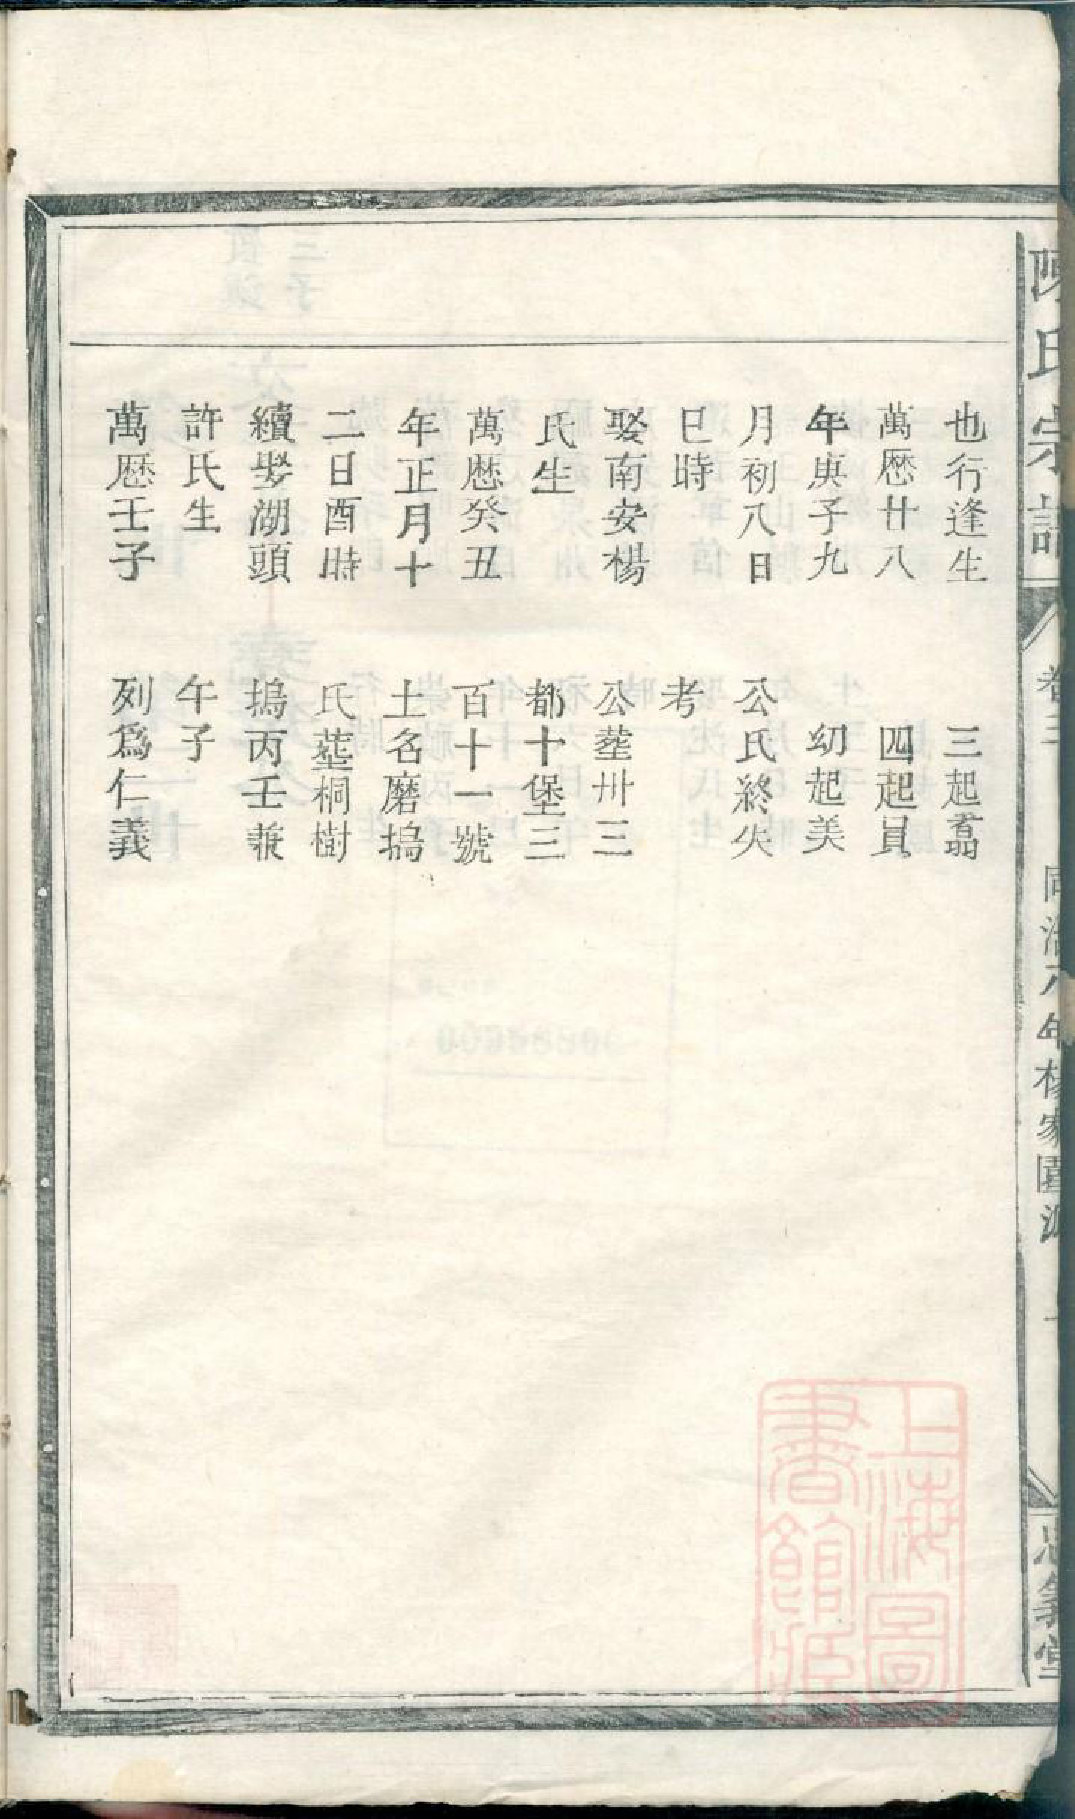 陳氏宗譜
卷三
同治八年楊家園派
忠義堂
也行逢生
萬厯廿八
年庚子九
月初八日
巳時
娶南安楊
氏生
萬厯癸丑
年正月十
二日酉時
續娶湖頭
許氏生
萬厯壬子
三起翥
四起員
幼起美
公氏終失
考
公塟卅三
都十堡三
百十一號
土名磨塢
氏塟桐樹
塢丙壬兼
午子
列爲仁義
上海圖書館藏